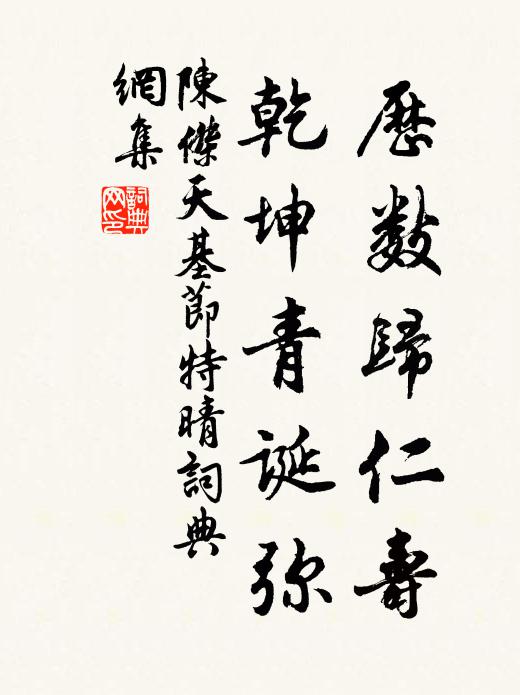 歷数歸仁壽
乾坤青誕弥
陳傑天基節特晴詞典
網集
詞典
网印